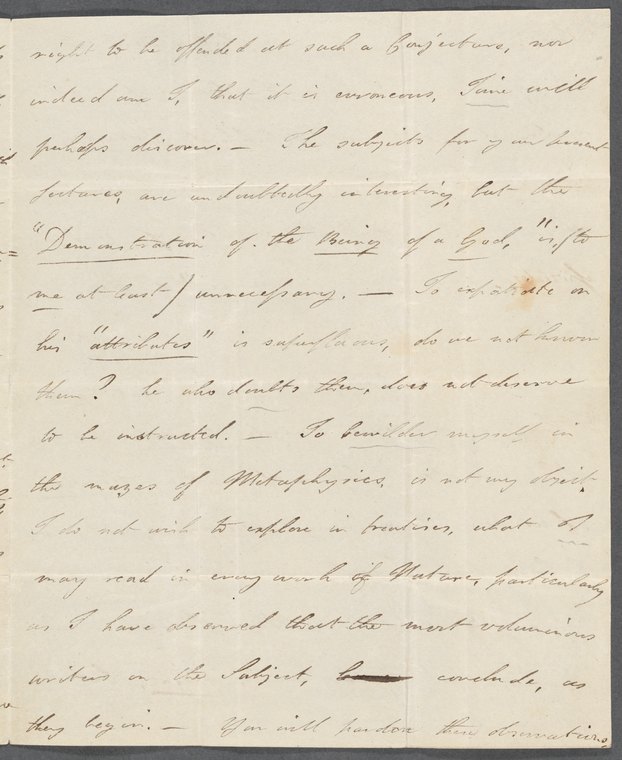 right to be offended at such a Conjecture, nor
indeed am I, that it is erroneous, Time will
perhaps discover. — The subjects for your present
lectures, are undoubtedly interesting, but the
"Demonstration of the Being of a God," is, (to
me at least) unnecessary. — To expatiate on
his "attributes" is superfluous, do we not know
them? he who doubts them, does not deserve
to be instructed. — To bewilder myself in
the mazes of Metaphysics, is not my object.
I do not wish to explore in treatises, what I
may read in every work of Nature, particularly
as I have observed that the most voluminous
writers on the Subject, conclude, as
they begin. — You will pardon these observations,